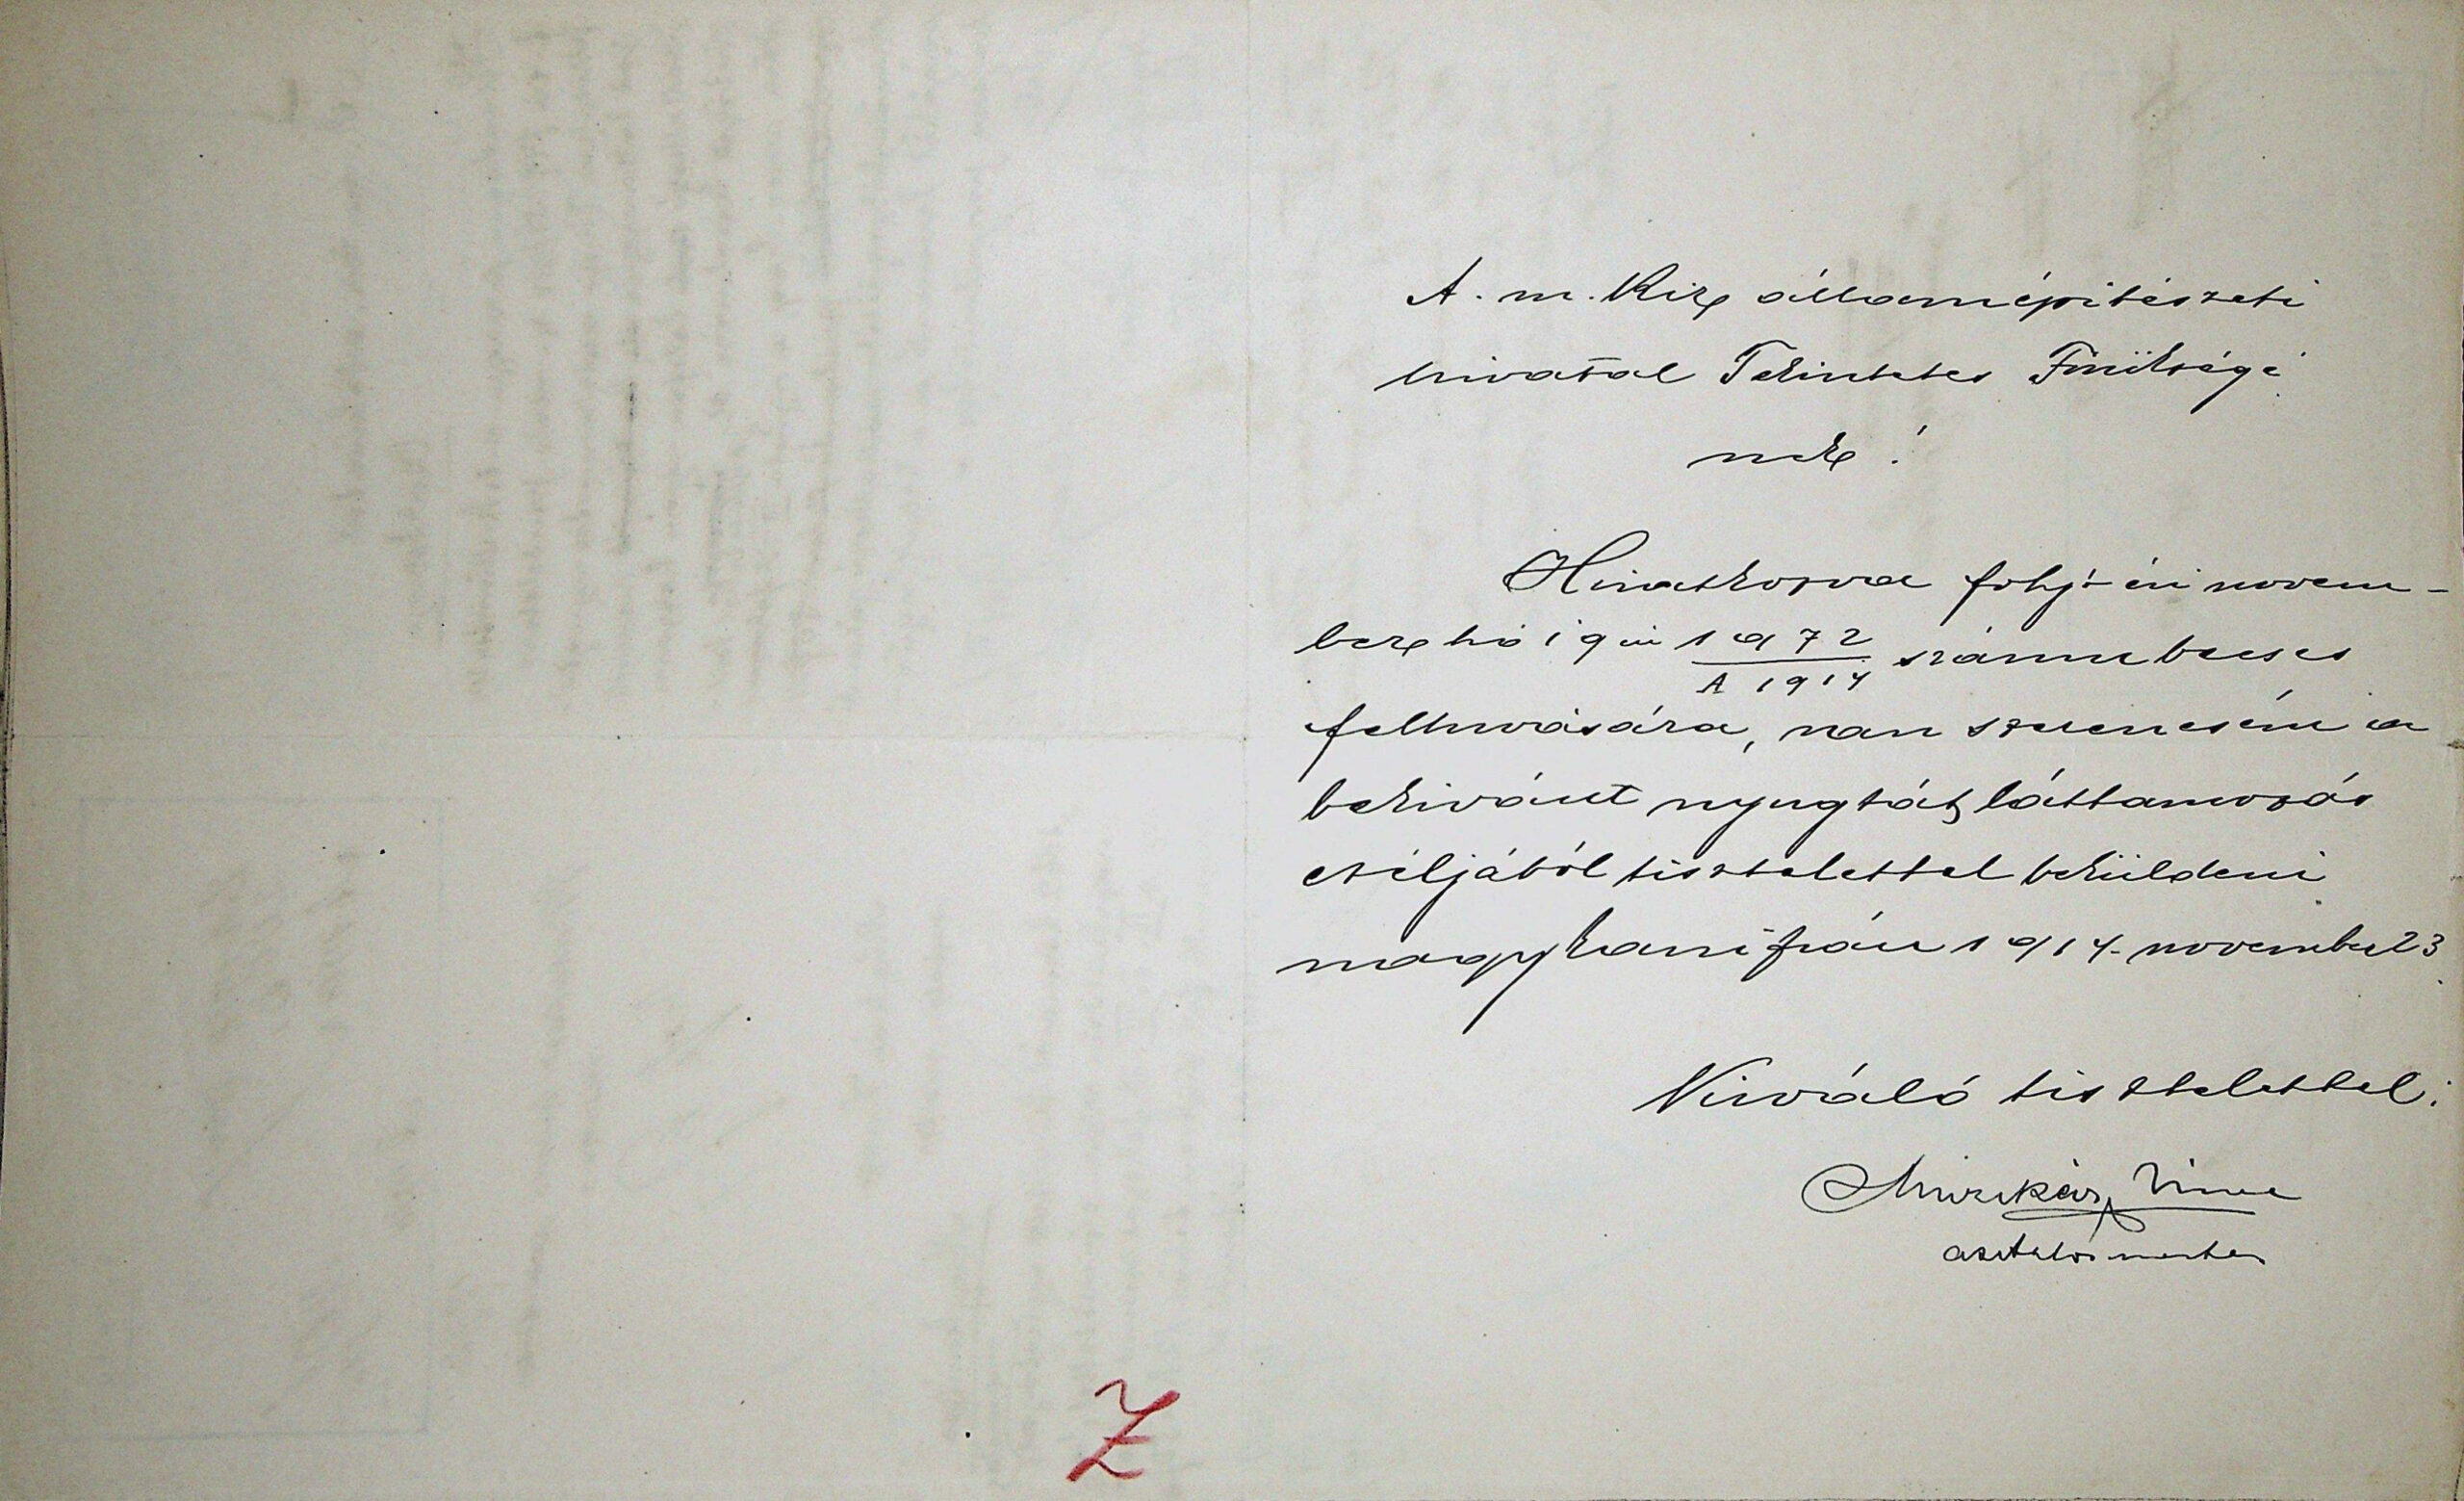 A. m. Kir államépitészeti
hivatal Tekintetes Főnökségé
nek!
Hivatkozva folyó évi novem-
ber hó 19 én 1972 számu becses
A 1914
felhivására, van szerencsém a
bekivánt nyugtát láttamozás
czéljából tisztelettel beküldeni
nagykanizsán 1914. november 23
Kiváló tisztelettel:
Vince
asztalos mester
Z